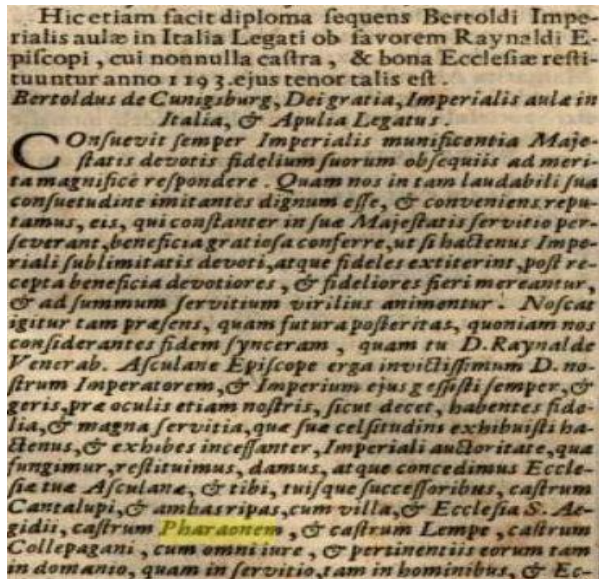 Hic etiam facit diploma sequens Bertoldi Impe-
rialis aulæ in Italia Legati ob favorem Raynaldi E-
piſcopi, cui nonnulla caſtra, & bona Eccleſiæ reſti-
tuuntur anno 1193. ejus tenor talis eſt.
Bertoldus de Cunigsburg, Dei gratia, Imperialis aulæ in
Italia, & Apulia Legatus.
COnſuevit ſemper Imperialis munificentia Maje-
ſtatis devotis fidelium ſuorum obſequiis ad meri-
ta magnificè reſpondere. Quam nos in tam laudabili ſua
conſuetudine imitantes dignum eſſe, & conveniens repu-
tamus, eis, qui conſtanter in ſuæ Majeſtatis ſervitio per-
ſeverant, beneficia gratioſa conferre, ut ſi hactenus Impe-
riali ſublimitatis devoti, atque fideles extiterint, poſt re-
cepta beneficia devotiores, & fideliores fieri mereantur,
& ad ſummum ſervitium virilius animentur. Noſcat
igitur tam præſens, quam futura poſteritas, quoniam nos
conſiderantes fidem ſynceram, quam tu D. Raynalde
Venerab. Aſculane Epiſcope erga invictiſſimum D. no-
ſtrum Imperatorem, & Imperium ejus geſſiſti ſemper, &
geris, præ oculis etiam noſtris, ſicut decet, habentes fide-
lia, & magna ſervitia, quæ ſuæ celſitudini exhibuiſti ha-
ctenus, & exhibes inceſſanter, Imperiali auctoritate, qua
fungimur, reſtituimus, damus, atque concedimus Eccle-
ſiæ tuæ Aſculanæ, & tibi, tuiſque ſucceſſoribus, caſtrum
Cantalupi, & ambas ripas, cum villa, & Eccleſia S. Ae-
gidii, caſtrum Pharaonem, & caſtrum Lempe, caſtrum
Collepagani, cum omni iure, & pertinentiis eorum tam
in domanio, quam in ſervitio, tam in hominibus, & Ec-